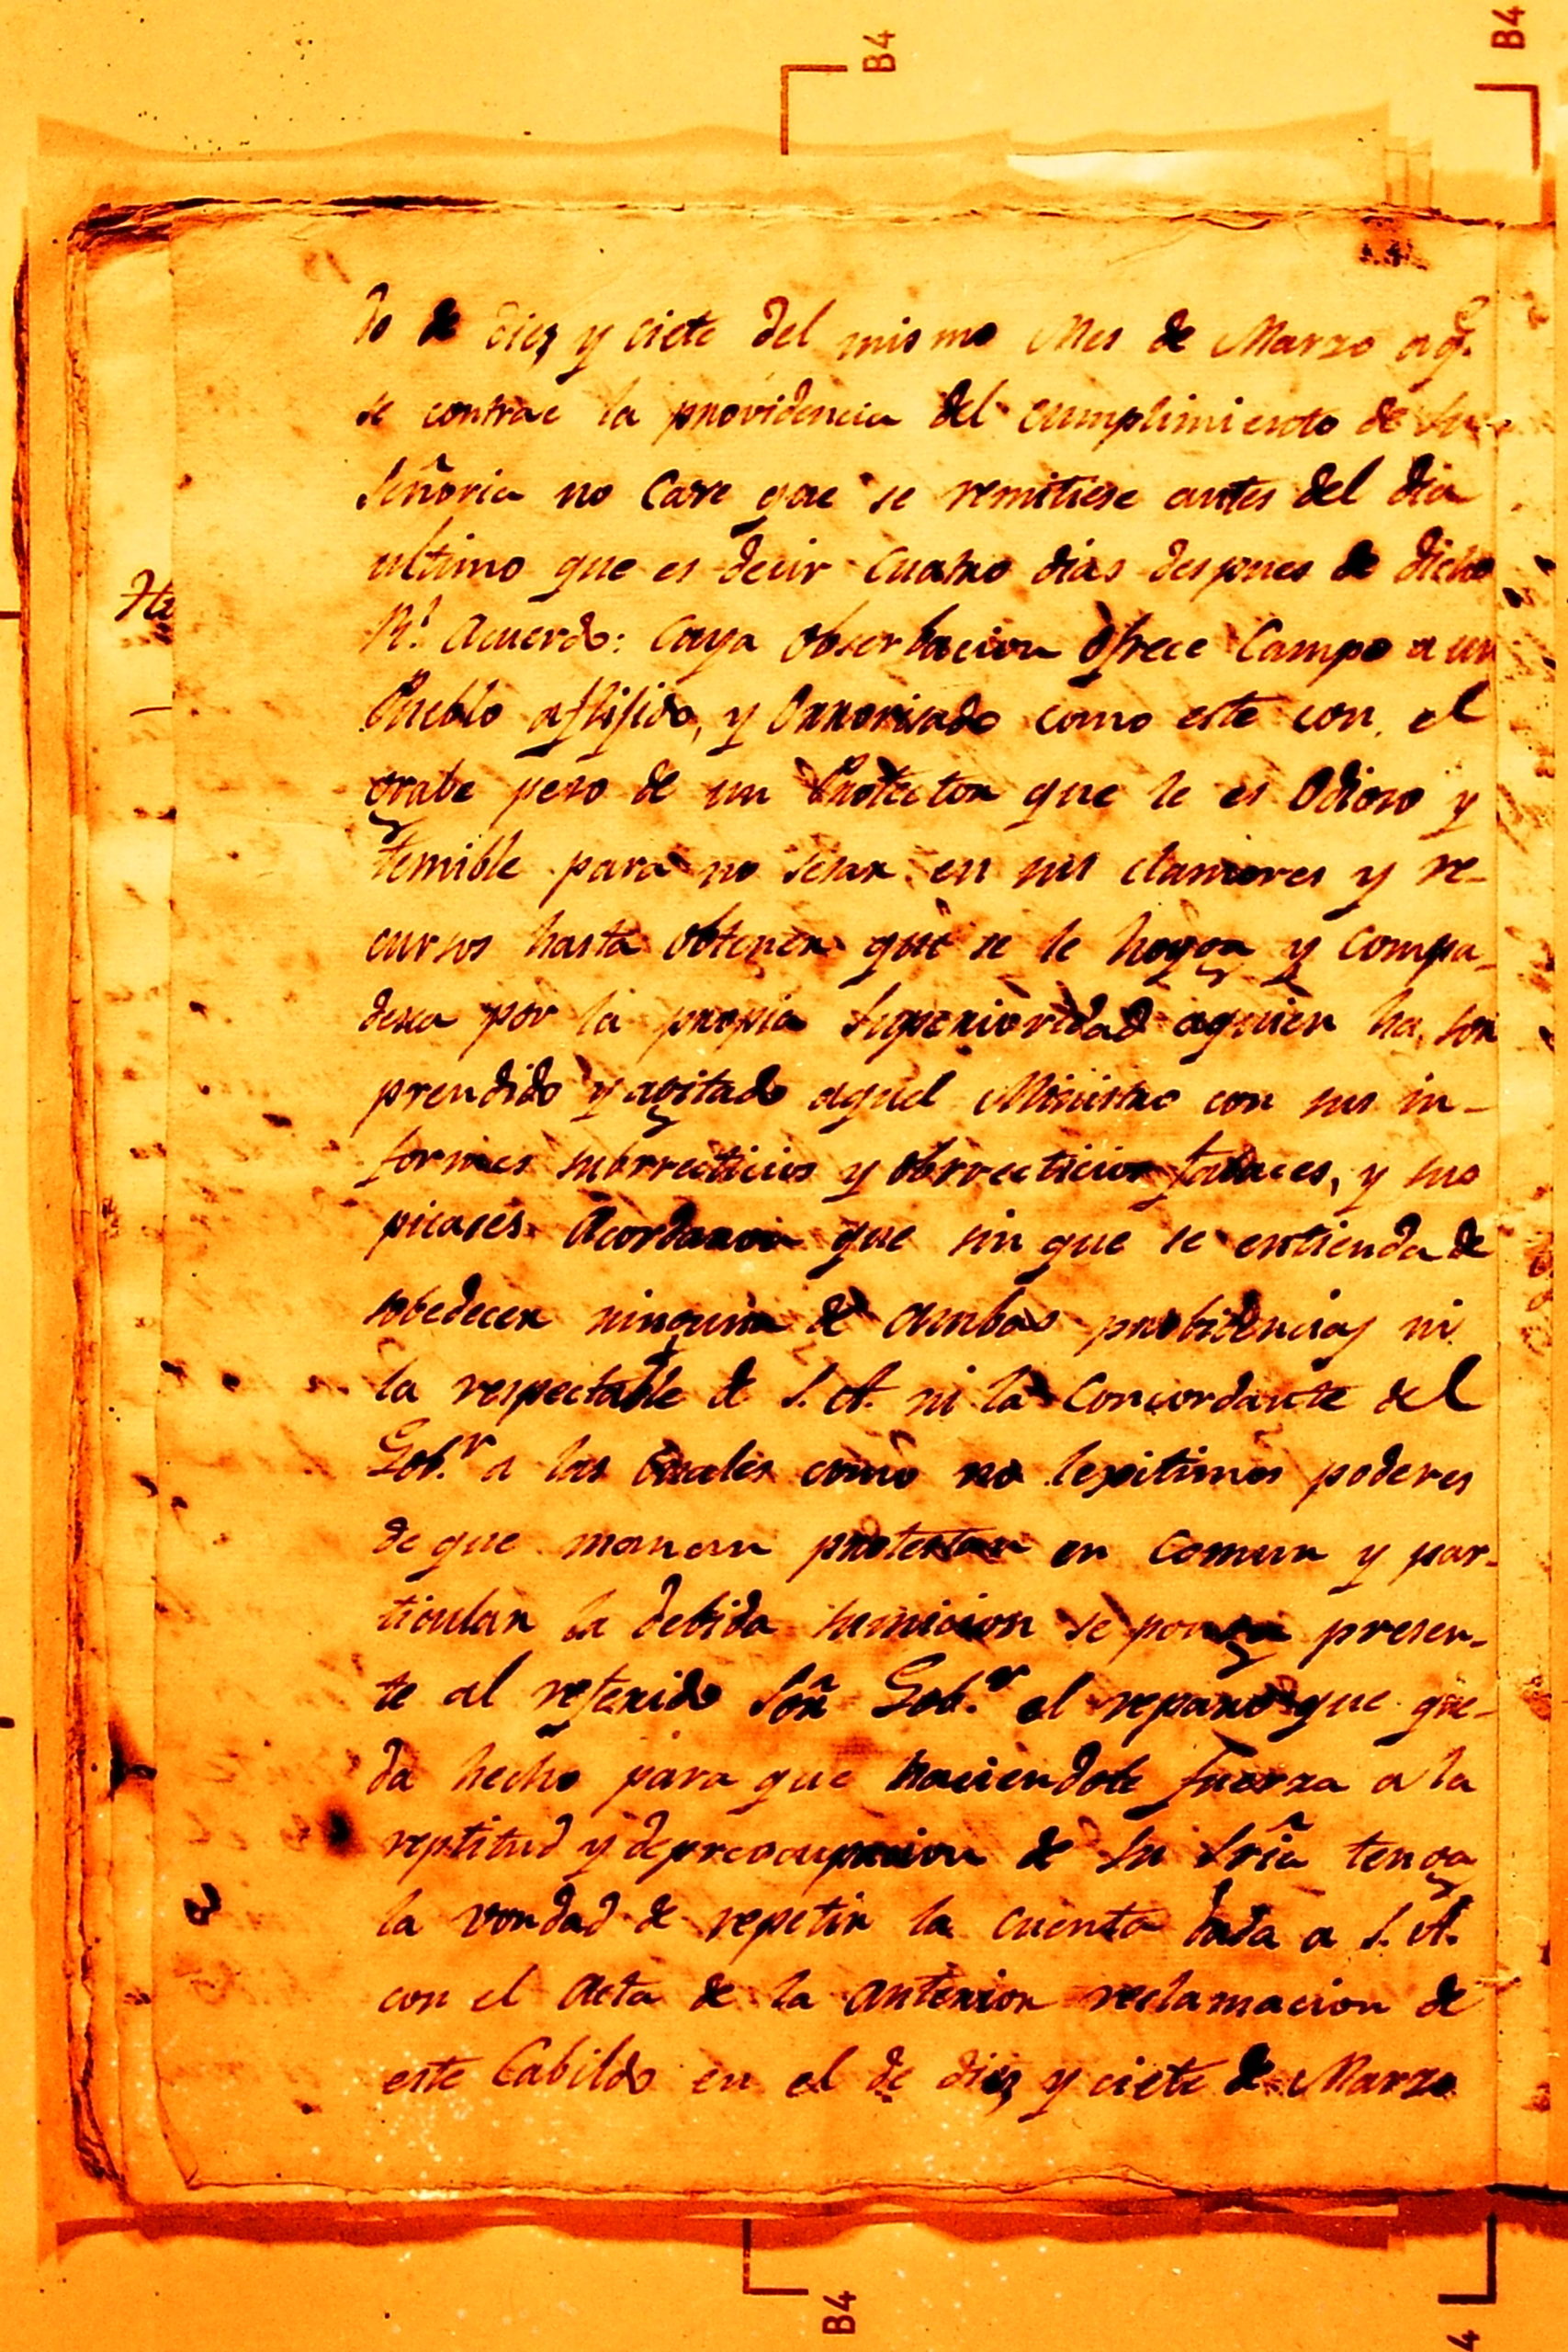 B4
B4
do de diez y ciete del mismo Mes de Marzo aq.e
se contrae la providencia del cumplimiento de Su
Señoria no Care que se remitiese antes del dia
ultimo que es decir Cuatro dias despues de dicho
Rl. Acuerdo: Cuya Obserbacion Ofrece Campo a un
Pueblo aflijido, y como este con el
grabe peso de un Protector que le es Odioso y
temible para no sesar en sus clamores y re-
cursos hasta obtener que se le hoyga y compa-
desca por la propia Superioridad aquien ha sor
prendido y agitado aquel Ministro con sus in-
formes subrrecticios y obrrecticios falaces, y sus
picases Acordaron que sin que se entienda de
sobedecer ninguna de ambas probidencias ni
la respectable de S. A. ni la Concordante del
Gob.r a las Cuales como no lexitimos poderes
de que manan protestan en Comun y par-
ticular la debida sumicion se ponga presen-
te al referido Sōr Gob.r el reparo que que-
da hecho para que haciendole fuerza a la
reptitud y depreocupacion de Su Sria tenga
la vondad de repetir la cuenta dada a S. A.
con el Acta de la anterior reclamacion de
este Cabildo en el de diez y ciete de Marzo
B4